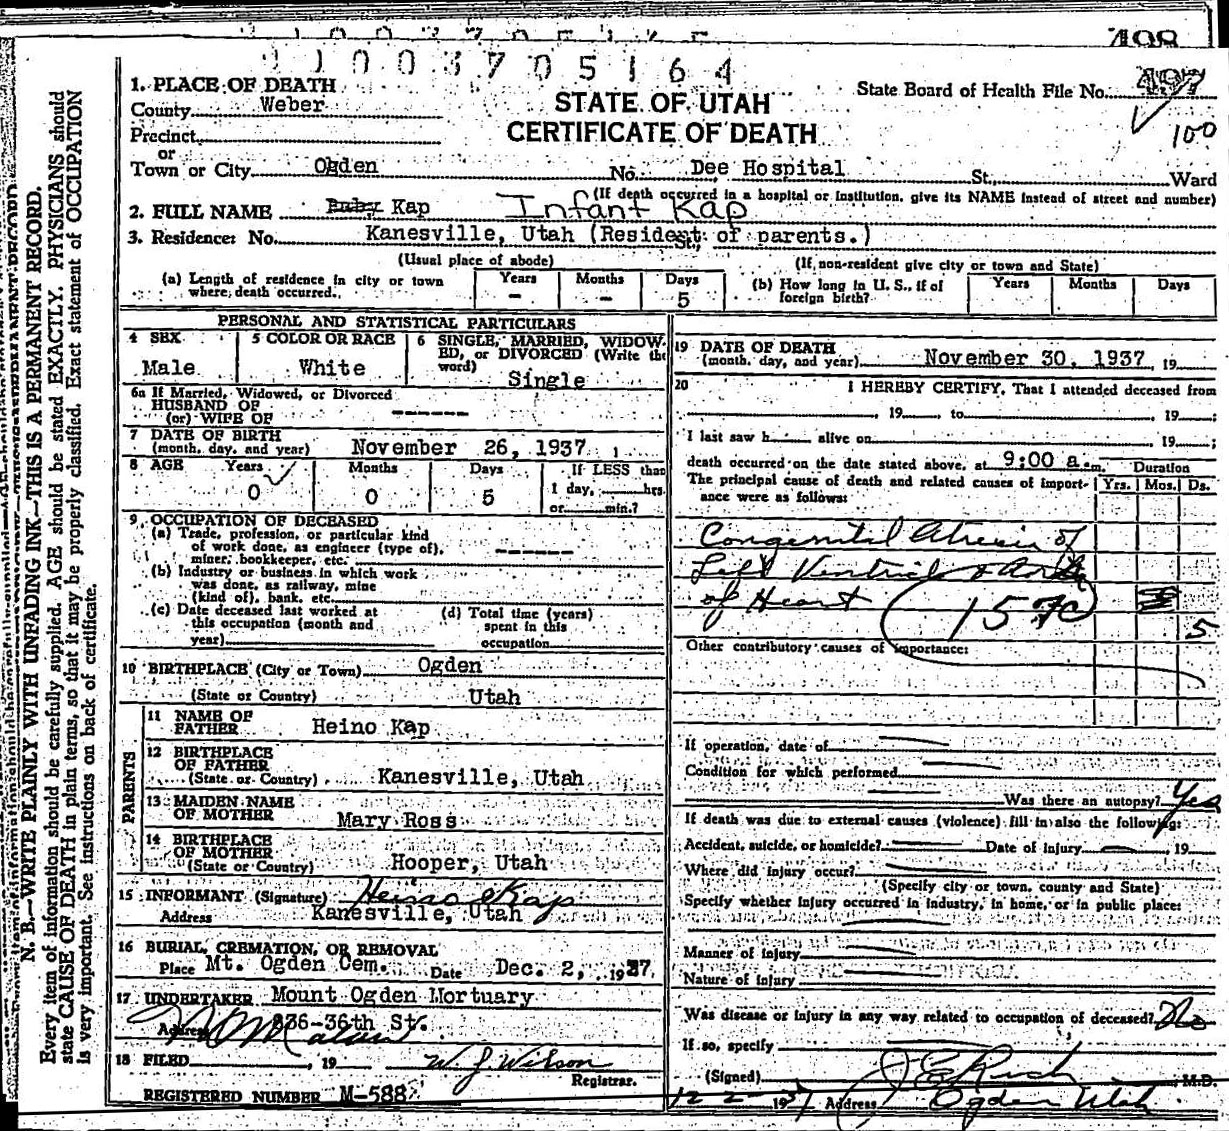 1003705164
498
1. PLACE OF DEATH
County Weber
STATE OF UTAH
CERTIFICATE OF DEATH
State Board of Health File No. 497
100
Precinct
or
Town or City Ogden No. Dee Hospital St. Ward
(If death occurred in a hospital or institution, give its NAME instead of street and number)
2. FULL NAME Baby Kap Infant Kap
3. Residence: No. Kanesville, Utah (Resident of parents.) St.
(Usual place of abode) (If non-resident give city or town and State)
(a) Length of residence in city or town where death occurred. Years - Months - Days 5
(b) How long in U. S., if of foreign birth? Years Months Days
PERSONAL AND STATISTICAL PARTICULARS
4 SEX Male
5 COLOR OR RACE White
6 SINGLE, MARRIED, WIDOWED, or DIVORCED (Write the word) Single
6a If Married, Widowed, or Divorced
HUSBAND OF
(or) WIFE OF ------
7 DATE OF BIRTH
(month, day, and year) November 26, 1937
8 AGE Years 0 Months 0 Days 5 If LESS than
1 day, hrs.
or min.?
9. OCCUPATION OF DECEASED
(a) Trade, profession, or particular kind
of work done, as engineer (type of),
miner, bookkeeper, etc. ------
(b) Industry or business in which work
was done, as railway, mine
(kind of), bank, etc.
(c) Date deceased last worked at
this occupation (month and
year)
(d) Total time (years)
spent in this
occupation
10 BIRTHPLACE (City or Town) Ogden
(State or Country) Utah
PARENTS
11 NAME OF
FATHER Heino Kap
12 BIRTHPLACE
OF FATHER
(State or Country) Kanesville, Utah
13 MAIDEN NAME
OF MOTHER Mary Ross
14 BIRTHPLACE
OF MOTHER
(State or Country) Hooper, Utah
15 INFORMANT (Signature) Heino Kap
Address Kanesville, Utah
16 BURIAL, CREMATION, OR REMOVAL
Place Mt. Ogden Cem. Date Dec. 2, 1937
17 UNDERTAKER Mount Ogden Mortuary
Address 836-36th St.
18 FILED , 19 W. J. Wilson
Registrar.
REGISTERED NUMBER M-588
19 DATE OF DEATH
(month, day, and year) November 30, 1937, 19
20 I HEREBY CERTIFY, That I attended deceased from
, 19 to , 19 ;
I last saw h alive on 19 ;
death occurred on the date stated above, at 9:00 a.m. Duration
The principal cause of death and related causes of importance were as follows: Yrs. Mos. Ds.
Congenital Atresia of
Left Ventricle & Aorta
of Heart 157c
5
Other contributory causes of importance:
If operation, date of
Condition for which performed
Was there an autopsy? Yes
If death was due to external causes (violence) fill in also the following:
Accident, suicide, or homicide? Date of injury , 19
Where did injury occur?
(Specify city or town, county and State)
Specify whether injury occurred in industry, in home, or in public place:
Manner of injury
Nature of injury
Was disease or injury in any way related to occupation of deceased? No
If so, specify
(Signed) J E Rich , M.D.
12-2-1937 Address Ogden Utah
N. B.—WRITE PLAINLY WITH UNFADING INK—THIS IS A PERMANENT RECORD.
Every item of information should be carefully supplied. AGE should be stated EXACTLY. PHYSICIANS should
state CAUSE OF DEATH in plain terms, so that it may be properly classified. Exact statement of OCCUPATION
is very important. See instructions on back of certificate.